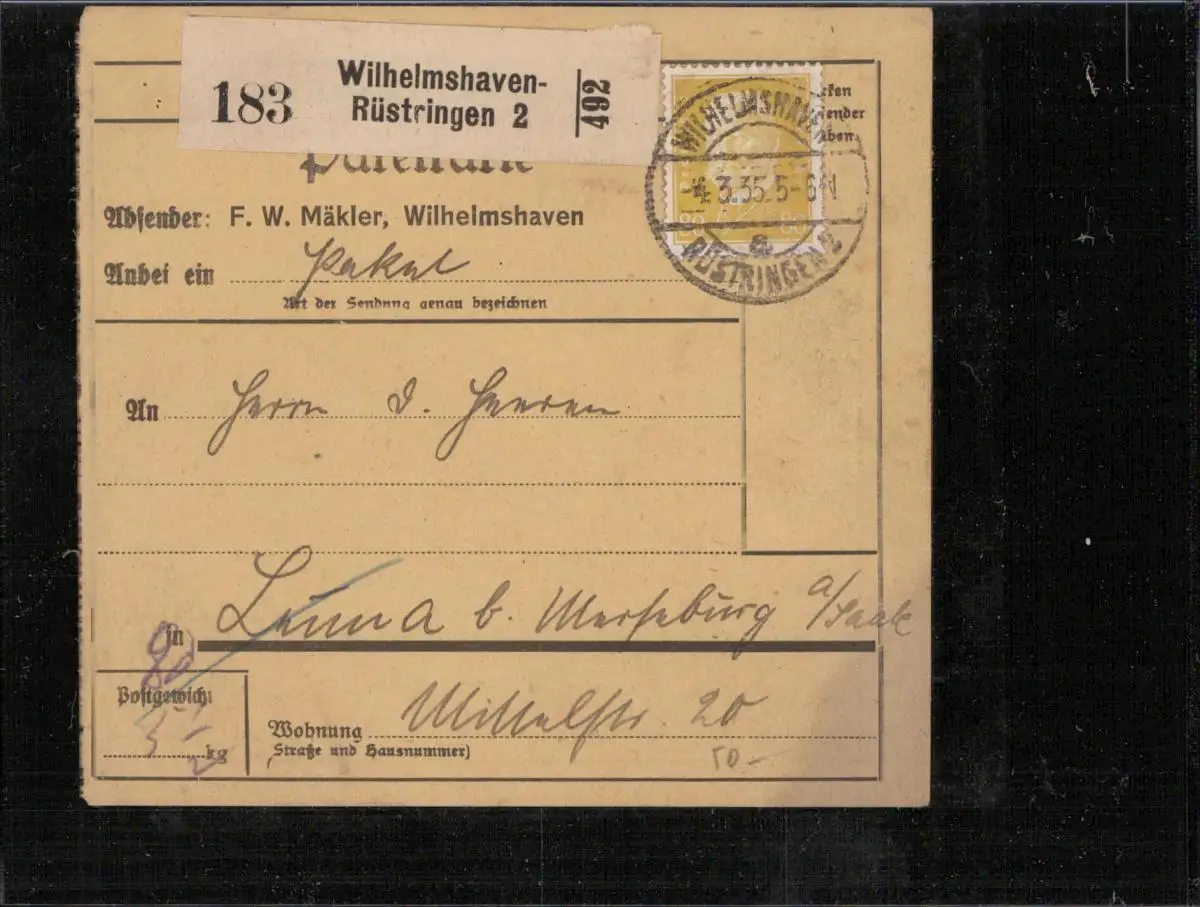 183
Wilhelmshaven-
Rüstringen 2
492
WILHELMSHAVEN
3.35.5-6N
a
RÜSTRINGEN 2
80
Absender: F. W. Mäkler, Wilhelmshaven
Anbei ein Paket
Art der Sendung genau bezeichnen
An Herrn D. Heeren
in Leuna b. Merseburg a/Saale
80
Postgewicht
5
kg
Wohnung Mittelstr. 20
(Straße und Hausnummer)
50-